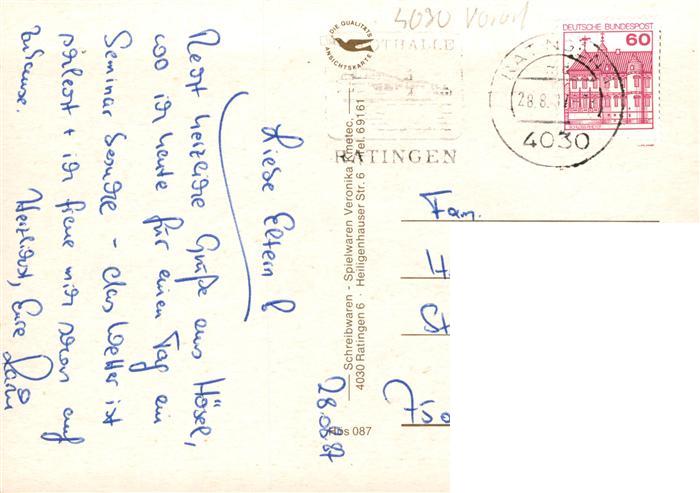 28.08.87
Liebe Eltern!
Recht herzliche Grüße aus Hösel,
wo ich heute für einen Tag ein
Seminar besuche - das Wetter ist
schlecht + ich freue mich schon auf
zuhause.
Herzlichst, Eure
DIE QUALITÄTS
ANSICHTSKARTE
Schreibwaren - Spielwaren Veronika
4030 Ratingen 6 · Heiligenhauser Str. 6 · Tel. 69161
Hös 087
4030
STADTHALLE
RATINGEN
RATINGEN
28.8.87
4030
DEUTSCHE BUNDESPOST
60
Fam.
H
St